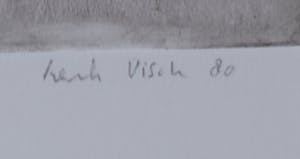 Henk Visch 80